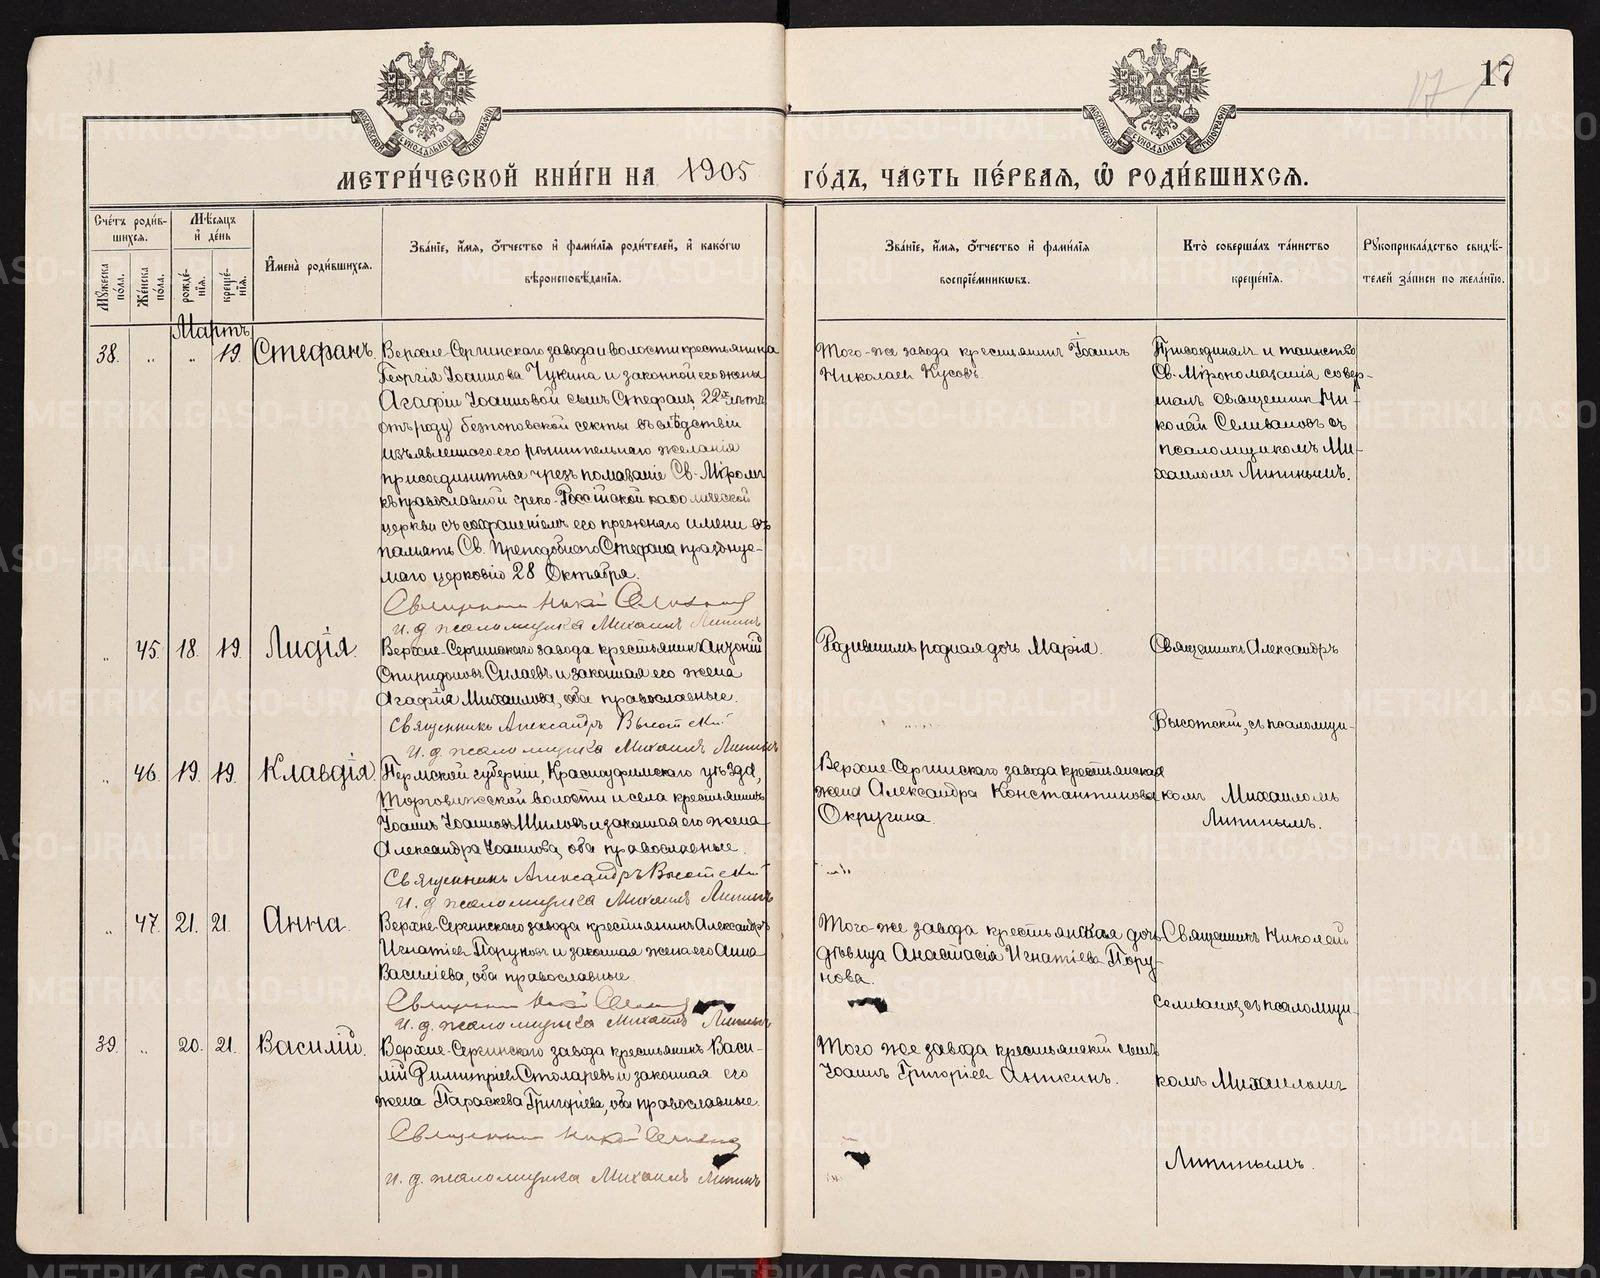 17
МЕТРИ́ЧЕСКОЙ КНИ́ГИ НА 1905 ГО́ДЪ, ЧА́СТЬ ПЕ́РВАѦ, Ѡ҆ РОДИ́ВШИХСѦ.
Сче́тъ роди́в-
шихсѧ.
Мꙋ́жеска по́ла.
Же́нска по́ла.
Мѣ́сѧцъ
и҆ де́нь
рожде́-
нїѧ.
креще́-
нїѧ.
И҆мена̀ роди́вшихсѧ.
Зва́нїе, и҆́мѧ, ѻ҆́тчество и҆ фами́лїѧ роди́телей, и҆ како́гѡ
вѣроисповѣ́данїѧ.
Зва́нїе, и҆́мѧ, ѻ҆́тчество и҆ фами́лїѧ
воспрїе́мникѡвъ.
Кто̀ соверша́лъ та́инство
креще́нїѧ.
Рꙋкоприкла́дство свидѣ́-
телей за́писи по жела́нїю.
Мартъ
38. „ „ 19. Стефанъ.
Верхне-Сергинскаго завода и волости крестьянина
Георгія Іоаннова Чукина и законной его жены
Агафіи Іоанновой сынъ Стефанъ, 22х лѣтъ
отъ роду безпоповской секты вслѣдствіи
изъявленнаго его рѣшительнаго желанія
присоединиться чрезъ помазаніе Св. Мѵромъ
къ православной греко-Россійской каѳолической
церкви съ сохраненіемъ его прежняго имени въ
память Св. Преподобнаго Стефана празднуе-
маго церковію 28 Октября.
Священникъ Селивановъ
и. д. псаломщика Михаилъ Липинъ
Того-же завода крестьянинъ Іоаннъ
Николаевъ Кусовъ.
Присоединялъ и таинство
Св. Мѵропомазанія совер-
шалъ священникъ Ни-
колай Селивановъ съ
псаломщикомъ Ми-
хаиломъ Липинымъ.
„ 45. 18. 19. Лидія.
Верхне-Сергинскаго завода крестьянинъ Антоній
Спиридоновъ Силаевъ и законная его жена
Агафія Михаилова, оба православные.
Священникъ Александръ Высотскій
и. д. псаломщика Михаилъ Липинъ
Родившимъ родная дочь Марія.
Священникъ Александръ
Высотскій, съ псаломщи-
„ 46. 19. 19. Клавдія.
Пермской губерніи, Красноуфимскаго уѣзда,
Торговижской волости и села крестьянинъ
Іоаннъ Іоанновъ Шиловъ и законная его жена
Александра Іоаннова, оба православные.
Священникъ Александръ Высотскій
и. д. псаломщика Михаилъ Липинъ
Верхне-Сергинскаго завода крестьянская
жена Александра Константинова
Округина.
комъ Михаиломъ
Липинымъ.
„ 47. 21. 21. Анна.
Верхне-Сергинскаго завода крестьянинъ Александръ
Игнатіевъ Поруновъ и законная жена его Анна
Василіева, оба православные
Священникъ Селивановъ
и. д. псаломщика Михаилъ Липинъ
Того-же завода крестьянская дочь
дѣвица Анастасія Игнатіева Пору-
нова.
Священникъ Николай
Селивановъ съ псаломщи-
39. „ 20. 21. Василій.
Верхне-Сергинскаго завода крестьянинъ Васи-
лій Димитріевъ Столаревъ и законная его
жена Параскева Григоріева, оба православные.
Священникъ Селивановъ
и. д. псаломщика Михаилъ Липинъ
Того же завода крестьянскій сынъ
Іоаннъ Григоріевъ Аникинъ.
комъ Михаиломъ
Липинымъ.
METRIKI.GASO-URAL.RU